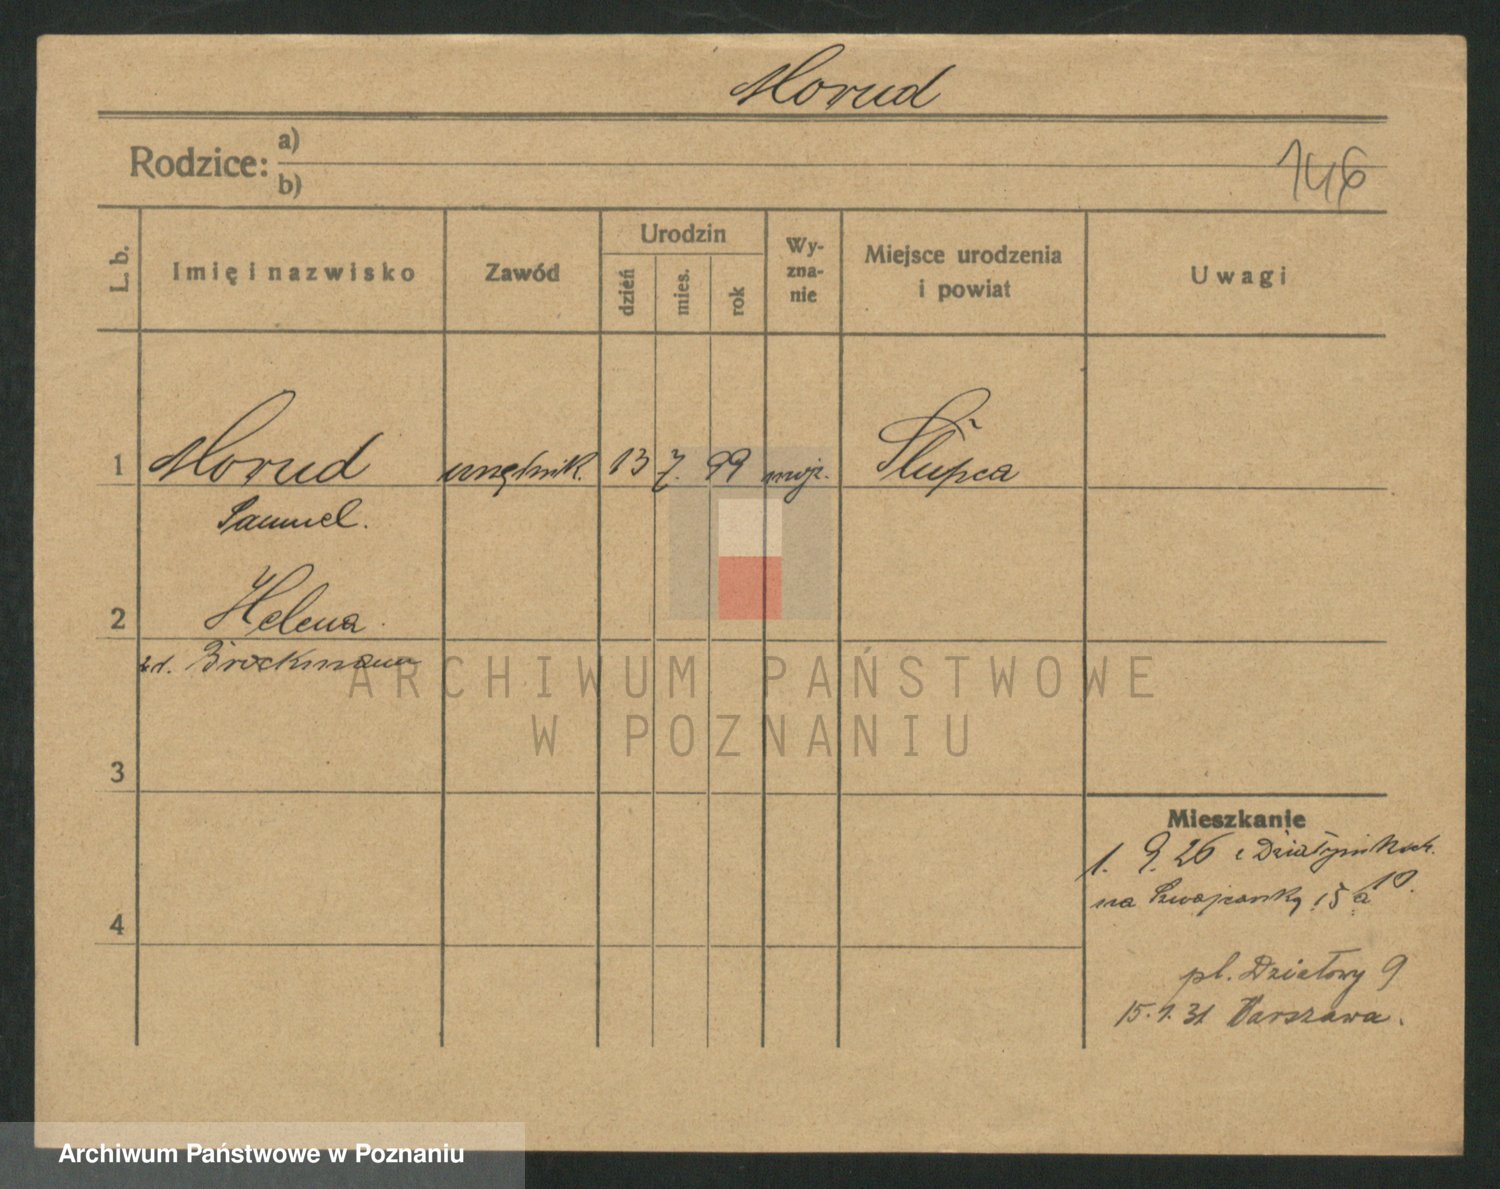 Morud
Rodzice: a)
b)
146
L. b.
Imię i nazwisko
Zawód
Urodzin
dzień
mies.
rok
Wy-
zna-
nie
Miejsce urodzenia
i powiat
Uwagi
1 Morud urzędnik. 13 7. 99 mojż. Słupca
Samuel.
2 Helena
z d. Brockmann
3
4
Mieszkanie
1. 9. 26 z Działyńskich 10.
na Szwajcarską 15 a
pl. Działowy 9
15.1.31 Warszawa.
ARCHIWUM PAŃSTWOWE
W POZNANIU
Archiwum Państwowe w Poznaniu